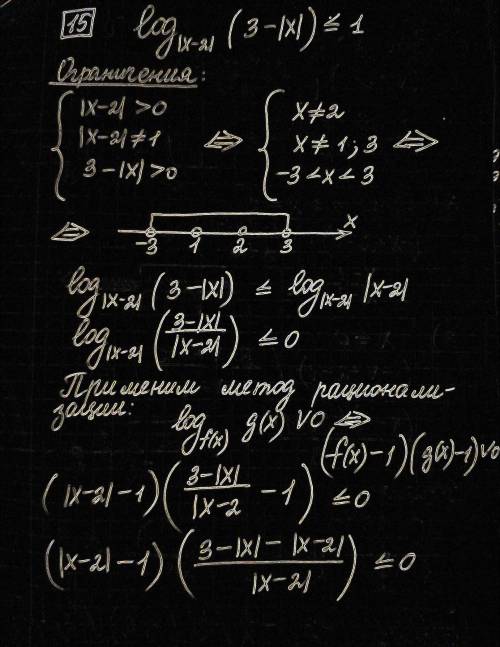 15 log_|x-2| (3-|x|) ≤ 1
Ограничения:
{ |x-2| > 0
|x-2| ≠ 1
3-|x| > 0
⇔
{ x ≠ 2
x ≠ 1; 3
-3 < x < 3
⇔
⇔ -3 1 2 3 x
log_|x-2| (3-|x|) ≤ log_|x-2| |x-2|
log_|x-2| ((3-|x|)/|x-2|) ≤ 0
Применим метод рационали-
зации:
log_f(x) g(x) ∨ 0 ⇔
(f(x)-1)(g(x)-1) ∨ 0
(|x-2|-1)((3-|x|)/|x-2 - 1) ≤ 0
(|x-2|-1)((3-|x|-|x-2|)/|x-2|) ≤ 0